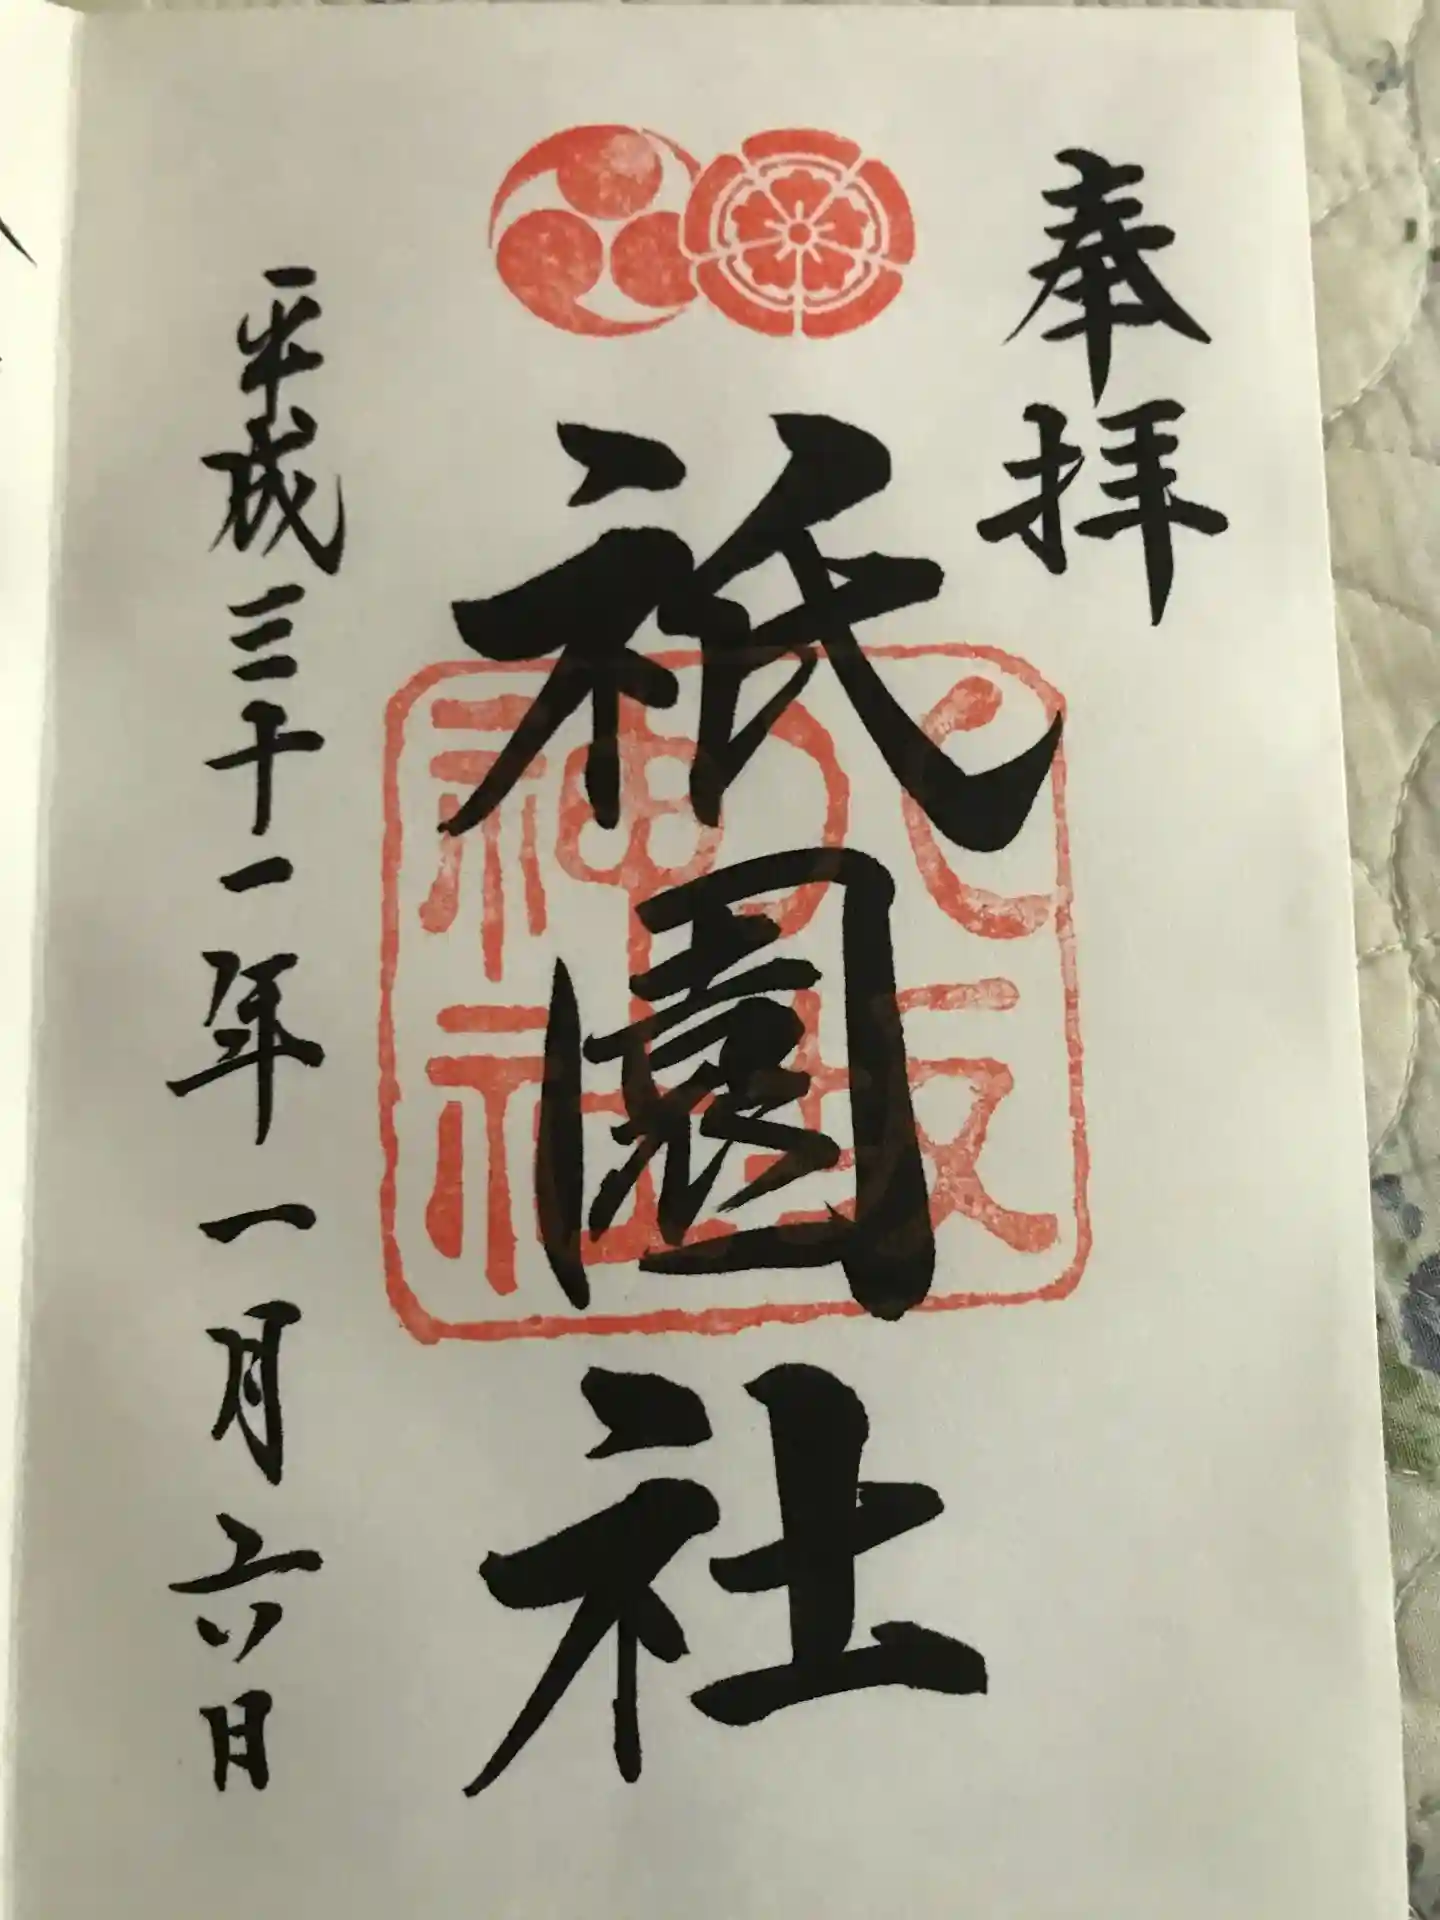 奉拝
祇園社
八坂神社
平成三十一年一月六日